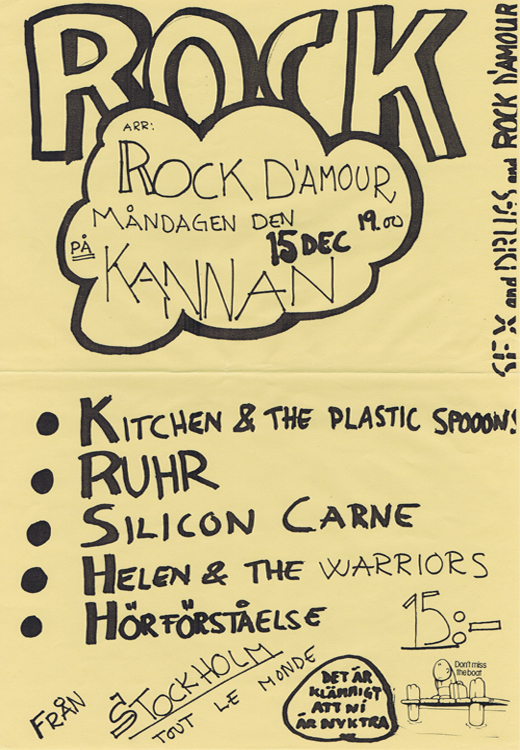 ROCK
ARR:
ROCK D'AMOUR
MÅNDAGEN DEN 19.00
15 DEC
PÅ
KANNAN
SEX and DRUGS and ROCK D'AMOUR
• KITCHEN & THE PLASTIC SPOOON!
• RUHR
• SILICON CARNE
• HELEN & THE WARRIORS
• HÖRFÖRSTÅELSE
15:-
FRÅN STOCKHOLM
TOUT LE MONDE
DET ÄR
KLÄMMIGT
ATT NI
ÄR NYKTRA
Don't miss
the boat